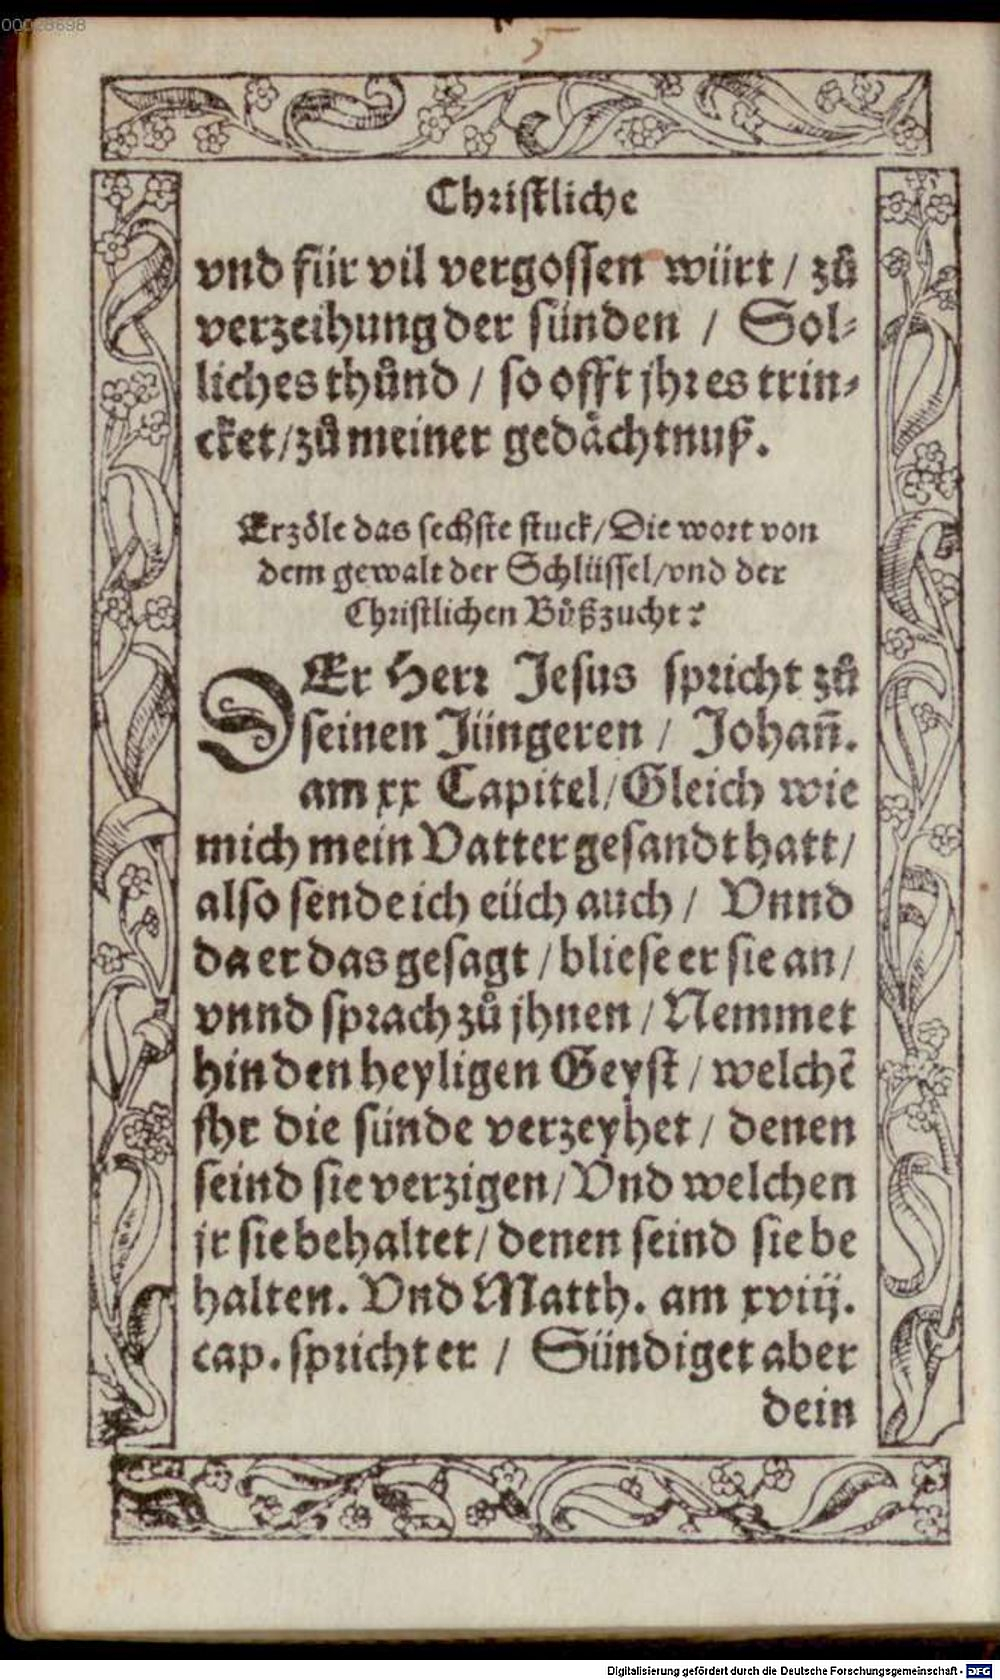 00028698
5
Christliche
vnd für vil vergossen würt / zů
verzeihung der sünden / Sol⸗
liches thůnd / so offt jhr es trin⸗
cket / zů meiner gedächtnuß.
Erzöle das sechste stuck / Die wort von
dem gewalt der Schlüssel / vnd der
Christlichen Bůßzucht?
DEr Herr Jesus spricht zů
seinen Jüngeren / Johañ.
am xx Capitel / Gleich wie
mich mein Vatter gesandt hatt /
also sende ich eüch auch / Vnnd
da er das gesagt / bliese er sie an /
vnnd sprach zů jhnen / Nemmet
hin den heyligen Geyst / welchẽ
jhr die sünde verzeyhet / denen
seind sie verzigen / Vnd welchen
jr sie behaltet / denen seind sie be
halten. Vnd Matth. am xviij.
cap. spricht er / Sündiget aber
dein
Digitalisierung gefördert durch die Deutsche Forschungsgemeinschaft - DFG